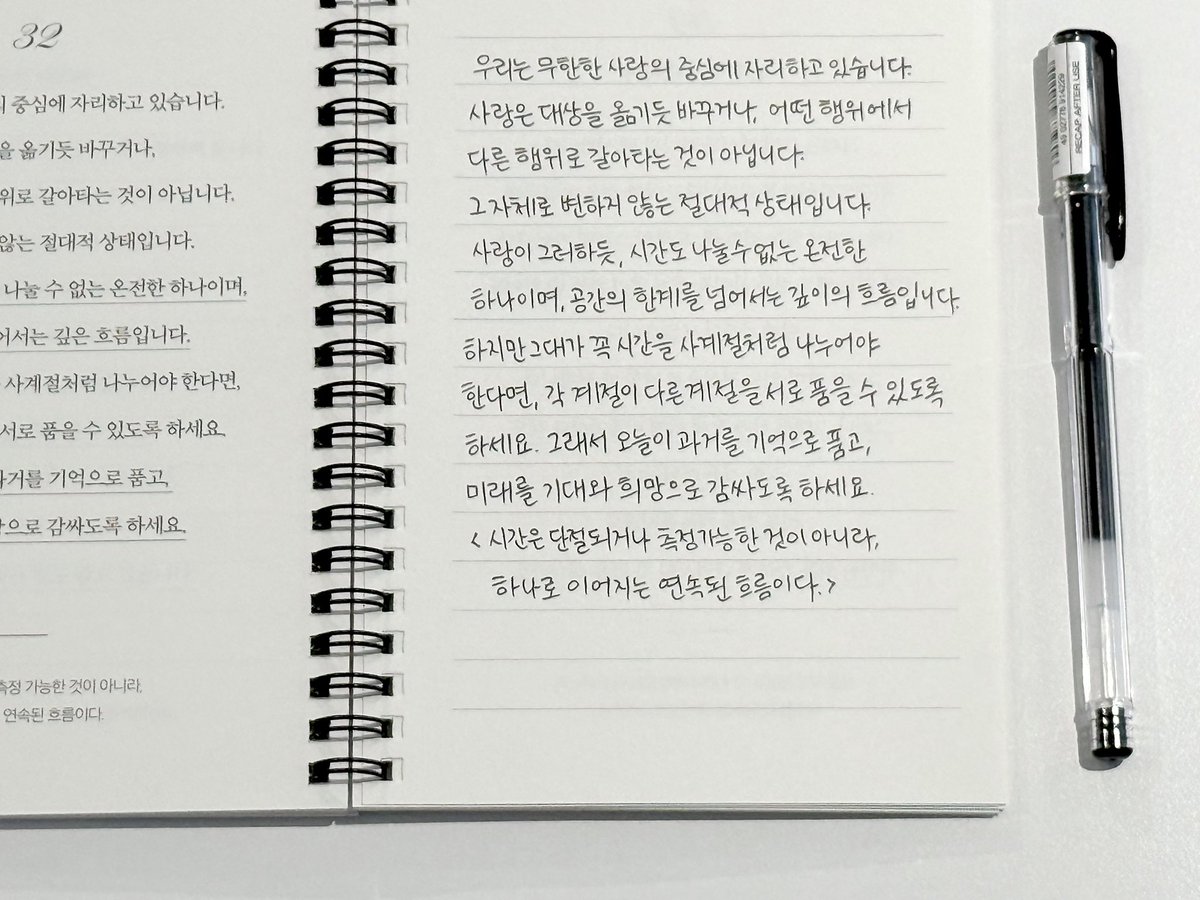 32
의 중심에 자리하고 있습니다.
을 옮기듯 바꾸거나,
위로 갈아타는 것이 아닙니다.
않는 절대적 상태입니다.
나눌 수 없는 온전한 하나이며,
어서는 깊은 흐름입니다.
사계절처럼 나누어야 한다면,
서로 품을 수 있도록 하세요.
과거를 기억으로 품고,
망으로 감싸도록 하세요.
측정 가능한 것이 아니라,
연속된 흐름이다.
우리는 무한한 사랑의 중심에 자리하고 있습니다.
사랑은 대상을 옮기듯 바꾸거나, 어떤 행위에서
다른 행위로 갈아타는 것이 아닙니다.
그 자체로 변하지 않는 절대적 상태입니다.
사랑이 그러하듯, 시간도 나눌 수 없는 온전한
하나이며, 공간의 한계를 넘어서는 깊이의 흐름입니다.
하지만 그대가 꼭 시간을 사계절처럼 나누어야
한다면, 각 계절이 다른 계절을 서로 품을 수 있도록
하세요. 그래서 오늘이 과거를 기억으로 품고,
미래를 기대와 희망으로 감싸도록 하세요.
< 시간은 단절되거나 측정가능한 것이 아니라,
하나로 이어지는 연속된 흐름이다. >
RECAP AFTER USE